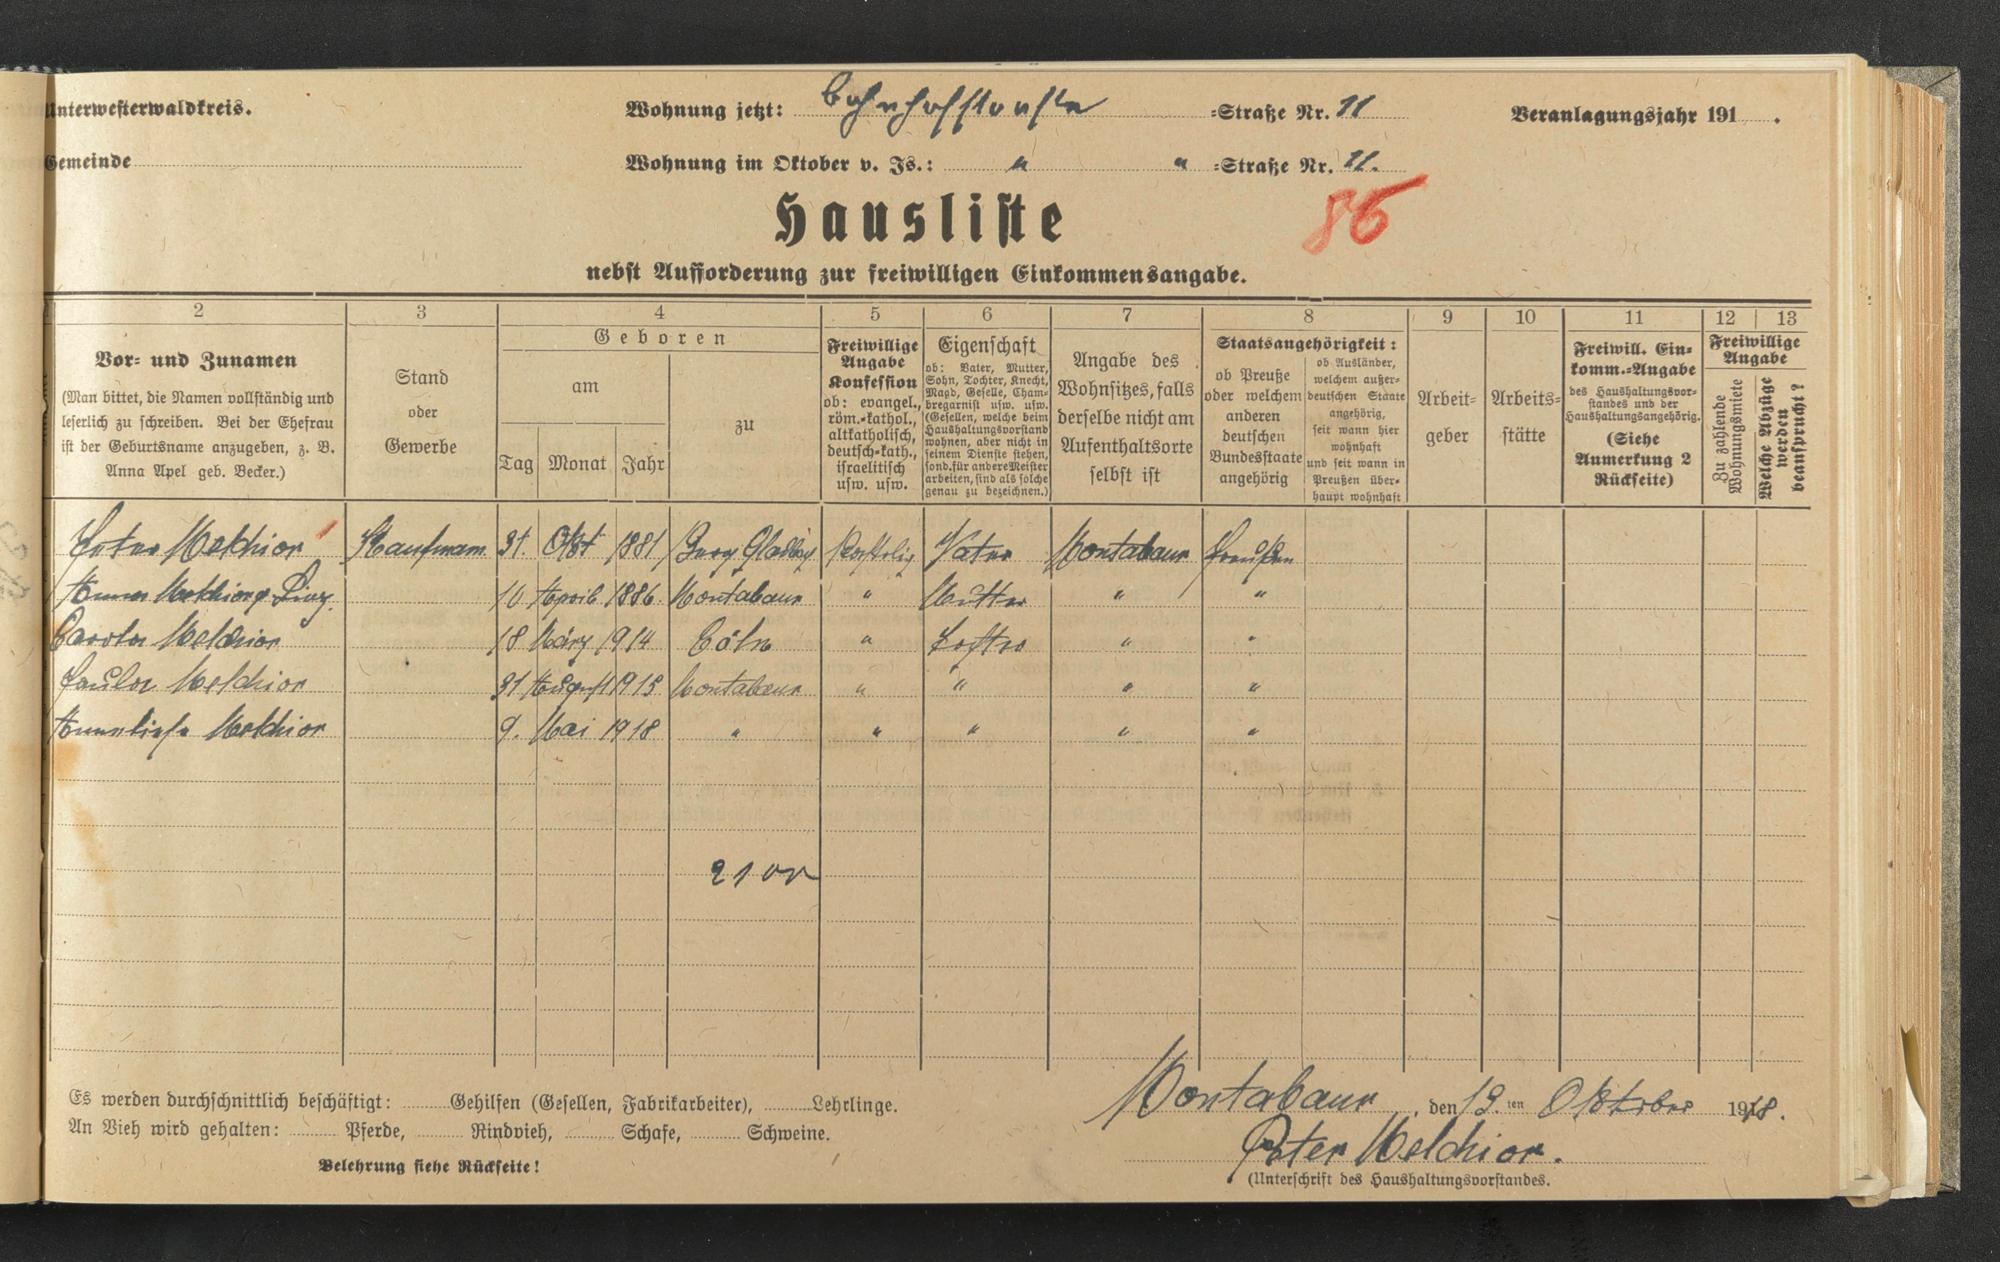 Unterwesterwaldkreis.
Wohnung jetzt: Bahnhofstraße =Straße Nr. 11
Veranlagungsjahr 191 .
Gemeinde
Wohnung im Oktober v. Js.: " " =Straße Nr. 11.
Hausliste
86
nebst Aufforderung zur freiwilligen Einkommensangabe.
2 3 4 5 6 7 8 9 10 11 12 13
Vor- und Zunamen
(Man bittet, die Namen vollständig und
leserlich zu schreiben. Bei der Ehefrau
ist der Geburtsname anzugeben, z. B.
Anna Apel geb. Becker.)
Stand
oder
Gewerbe
Geboren
am
Tag Monat Jahr
zu
Freiwillige
Angabe
Konfession
ob: evangel.,
röm.-kathol.,
altkatholisch,
deutsch-kath.,
israelitisch
usw. usw.
Eigenschaft
ob: Vater, Mutter,
Sohn, Tochter, Knecht,
Magd, Geselle, Cham-
bregarnist usw. usw.
(Gesellen, welche beim
Haushaltungsvorstand
wohnen, aber nicht in
seinem Dienste stehen,
sond. für andere Meister
arbeiten, sind als solche
genau zu bezeichnen.)
Angabe des
Wohnsitzes, falls
derselbe nicht am
Aufenthaltsorte
selbst ist
Staatsangehörigkeit:
ob Preuße
oder welchem
anderen
deutschen
Bundesstaate
angehörig
ob Ausländer,
welchem außer-
deutschen Staate
angehörig,
seit wann hier
wohnhaft
und seit wann in
Preußen über-
haupt wohnhaft
Arbeit-
geber
Arbeits-
stätte
Freiwill. Ein-
komm.-Angabe
des Haushaltungsvor-
standes und der
Haushaltungsangehörig.
(Siehe
Anmerkung 2
Rückseite)
Freiwillige
Angabe
Zu zahlende
Wohnungsmiete
Welche Abzüge
werden
beansprucht?
Peter Melchior Kaufmann 31. Okt 1881 Berg Gladbach Katholisch Vater Montabaur Preußen
Anna Melchior g. 10 April 1886 Montabaur " Mutter " "
Carola Melchior 18 März 1914 Cöln " Tochter " "
Paula Melchior 31 August 1915 Montabaur " " " "
Anneliese Melchior 9. Mai 1918 " " " " "
2100
Es werden durchschnittlich beschäftigt: Gehilfen (Gesellen, Fabrikarbeiter), Lehrlinge.
An Vieh wird gehalten: Pferde, Rindvieh, Schafe, Schweine.
Belehrung siehe Rückseite!
Montabaur, den 19. ten Oktober 1918.
Peter Melchior.
(Unterschrift des Haushaltungsvorstandes.